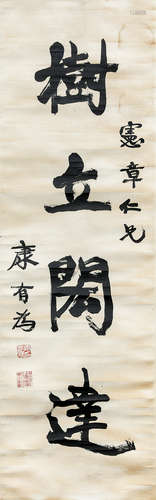 樹立閎達
憲章仁兄
康有為